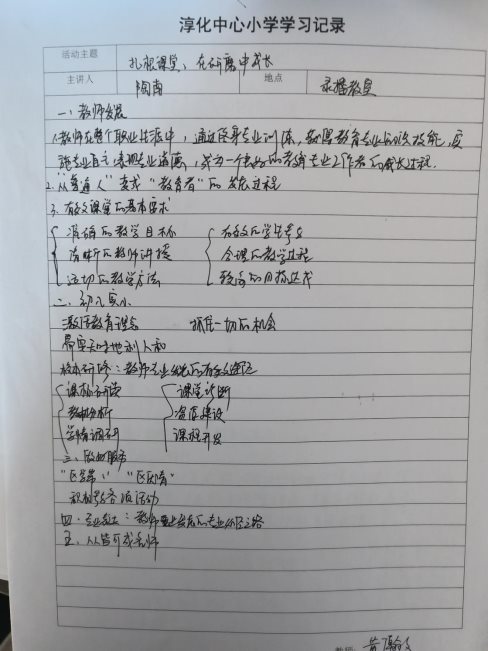 淳化中心小学学习记录
活动主题 扎根课堂,在研磨中成长
主讲人 陶南 地点 录播教室
一、教师发展
1.教师在整个职业生涯中,通过终身专业训练,教育专业知识技能,实
施专业自主,表现专业道德,成为一个良好的教育专业工作者的成长过程.
2."从普通人"变成"教育者"的发展过程
3.有效课堂的基本要求
准确的教学目标 有效的学生
清晰的教师讲授 合理的教学过程
适切的教学方法 的目标达成
二、
教育理念 抓住一切的机会
天时地利人和
校本研修:教师专业的有效途径
课标研读 课堂诊断
教材分析 资源建设
学情调研 课程开发
三、
"区"
积极参加各项活动
四、专业:教师专业发展的专业之路
五、人人皆可成名师